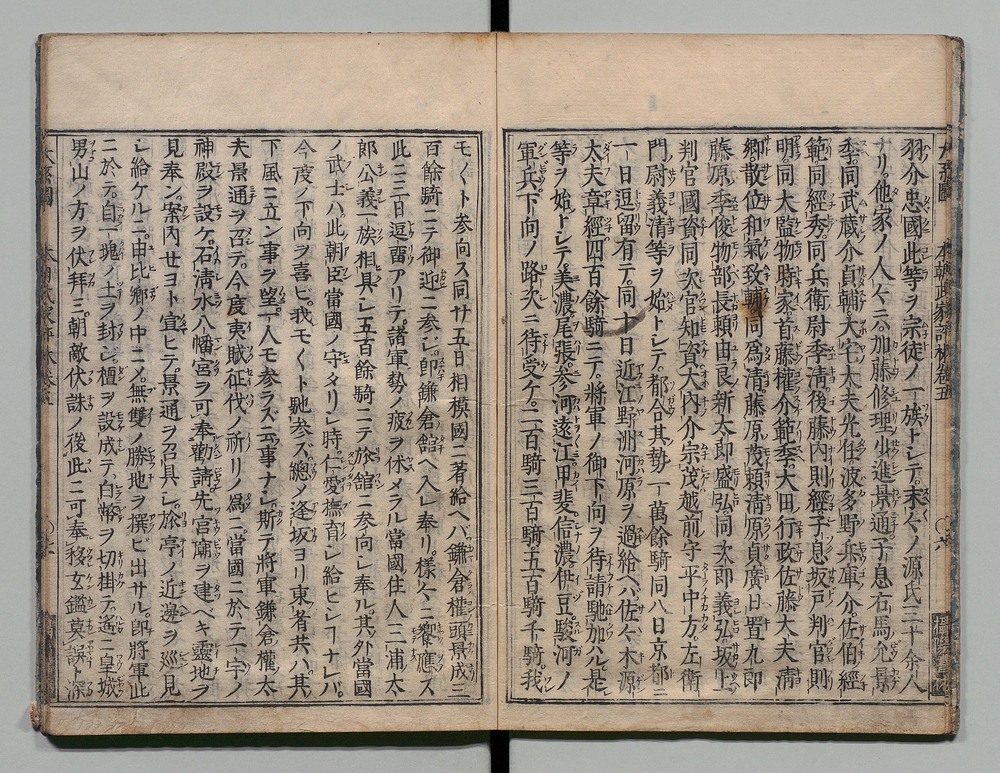 羽介忠國此等ヲ宗徒ノ一族トシテ。末々ノ源氏三十余人
ナリ。他家ノ人々ニハ。加藤修理少進景通。子息右馬允景
季。同武蔵介貞輔。大宅大夫光任。波多野兵庫介佐伯經
範。同經秀。同兵衛尉季清。後藤内則經。子息坂戸判官則
明。同大監物時家。首藤權介範季。大田行政。佐藤大夫清
郷。散位和氣致輔。同爲清。藤原茂頼。清原貞廣。日置九郎
藤原季俊。物部長頼。由良新太郎盛弘。同次郎義弘。坂上
判官國資。同次官知資。大内介宗茂。越前守平中方。左衛
門尉義清等ヲ始トシテ。都合其勢一萬餘騎。同八日京都ニ
一日逗留有テ。同十日近江野洲河原ヲ過給ヘバ。佐々木源
太夫章經四百餘騎ニテ。將軍ノ御下向ヲ待請馳加ハル。是
等ヲ始トシテ。美濃尾張。参河遠江甲斐信濃。伊豆駿河ノ
軍兵。下向ノ路次ニ待受ケ。二百騎三百騎。五百騎千騎。我
モ〱ト参向ス。同廿五日相模國ニ著給ヘバ。鎌倉權頭景成三
百餘騎ニテ御迎ニ参シ。即鎌倉舘ヘ入レ奉リ。様々ニ饗應ス。
此ニ三日逗畱アリテ。諸軍勢ノ疲ヲ休メラル。當國住人三浦太
郎公義一族相具シ。五百餘騎ニテ旅舘ニ参向シ奉ル。其外當國
ノ武士ハ。此朝臣當國ノ守タリシ時。仁愛撫育シ給ヒシヿナレバ。
今度ノ下向ヲ喜ビ。我モ〱ト馳参ズ。總メ逢坂ヨリ東者共ハ。其
下風ニ立ン事ヲ望。一人モ参ラズ云事ナシ。斯テ將軍鎌倉權太
夫景通ヲ召テ。今度夷賊征伐ノ祈リノ爲ニ。當國ニ於テ一宇ノ
神殿ヲ設ケ。石清水八幡宮ヲ可奉勸請。先宮廟ヲ建ベキ靈地ヲ
見奉ン。案内セヨト宣ヒテ。景通ヲ召具シ。旅亭ノ近邊ヲ巡見
シ給ケルニ。由比郷ノ中ニメ。無雙ノ勝地ヲ撰ビ出サル。即將軍此
ニ於テ。自一塊ノ土ヲ封ジ。檀ヲ設成テ。白幣ヲ切掛テ。遙ニ皇城
男山ノ方ヲ伏拜ミ。朝敵伏誅ノ後此ニ可奉移。玄鑑莫誤ト。深